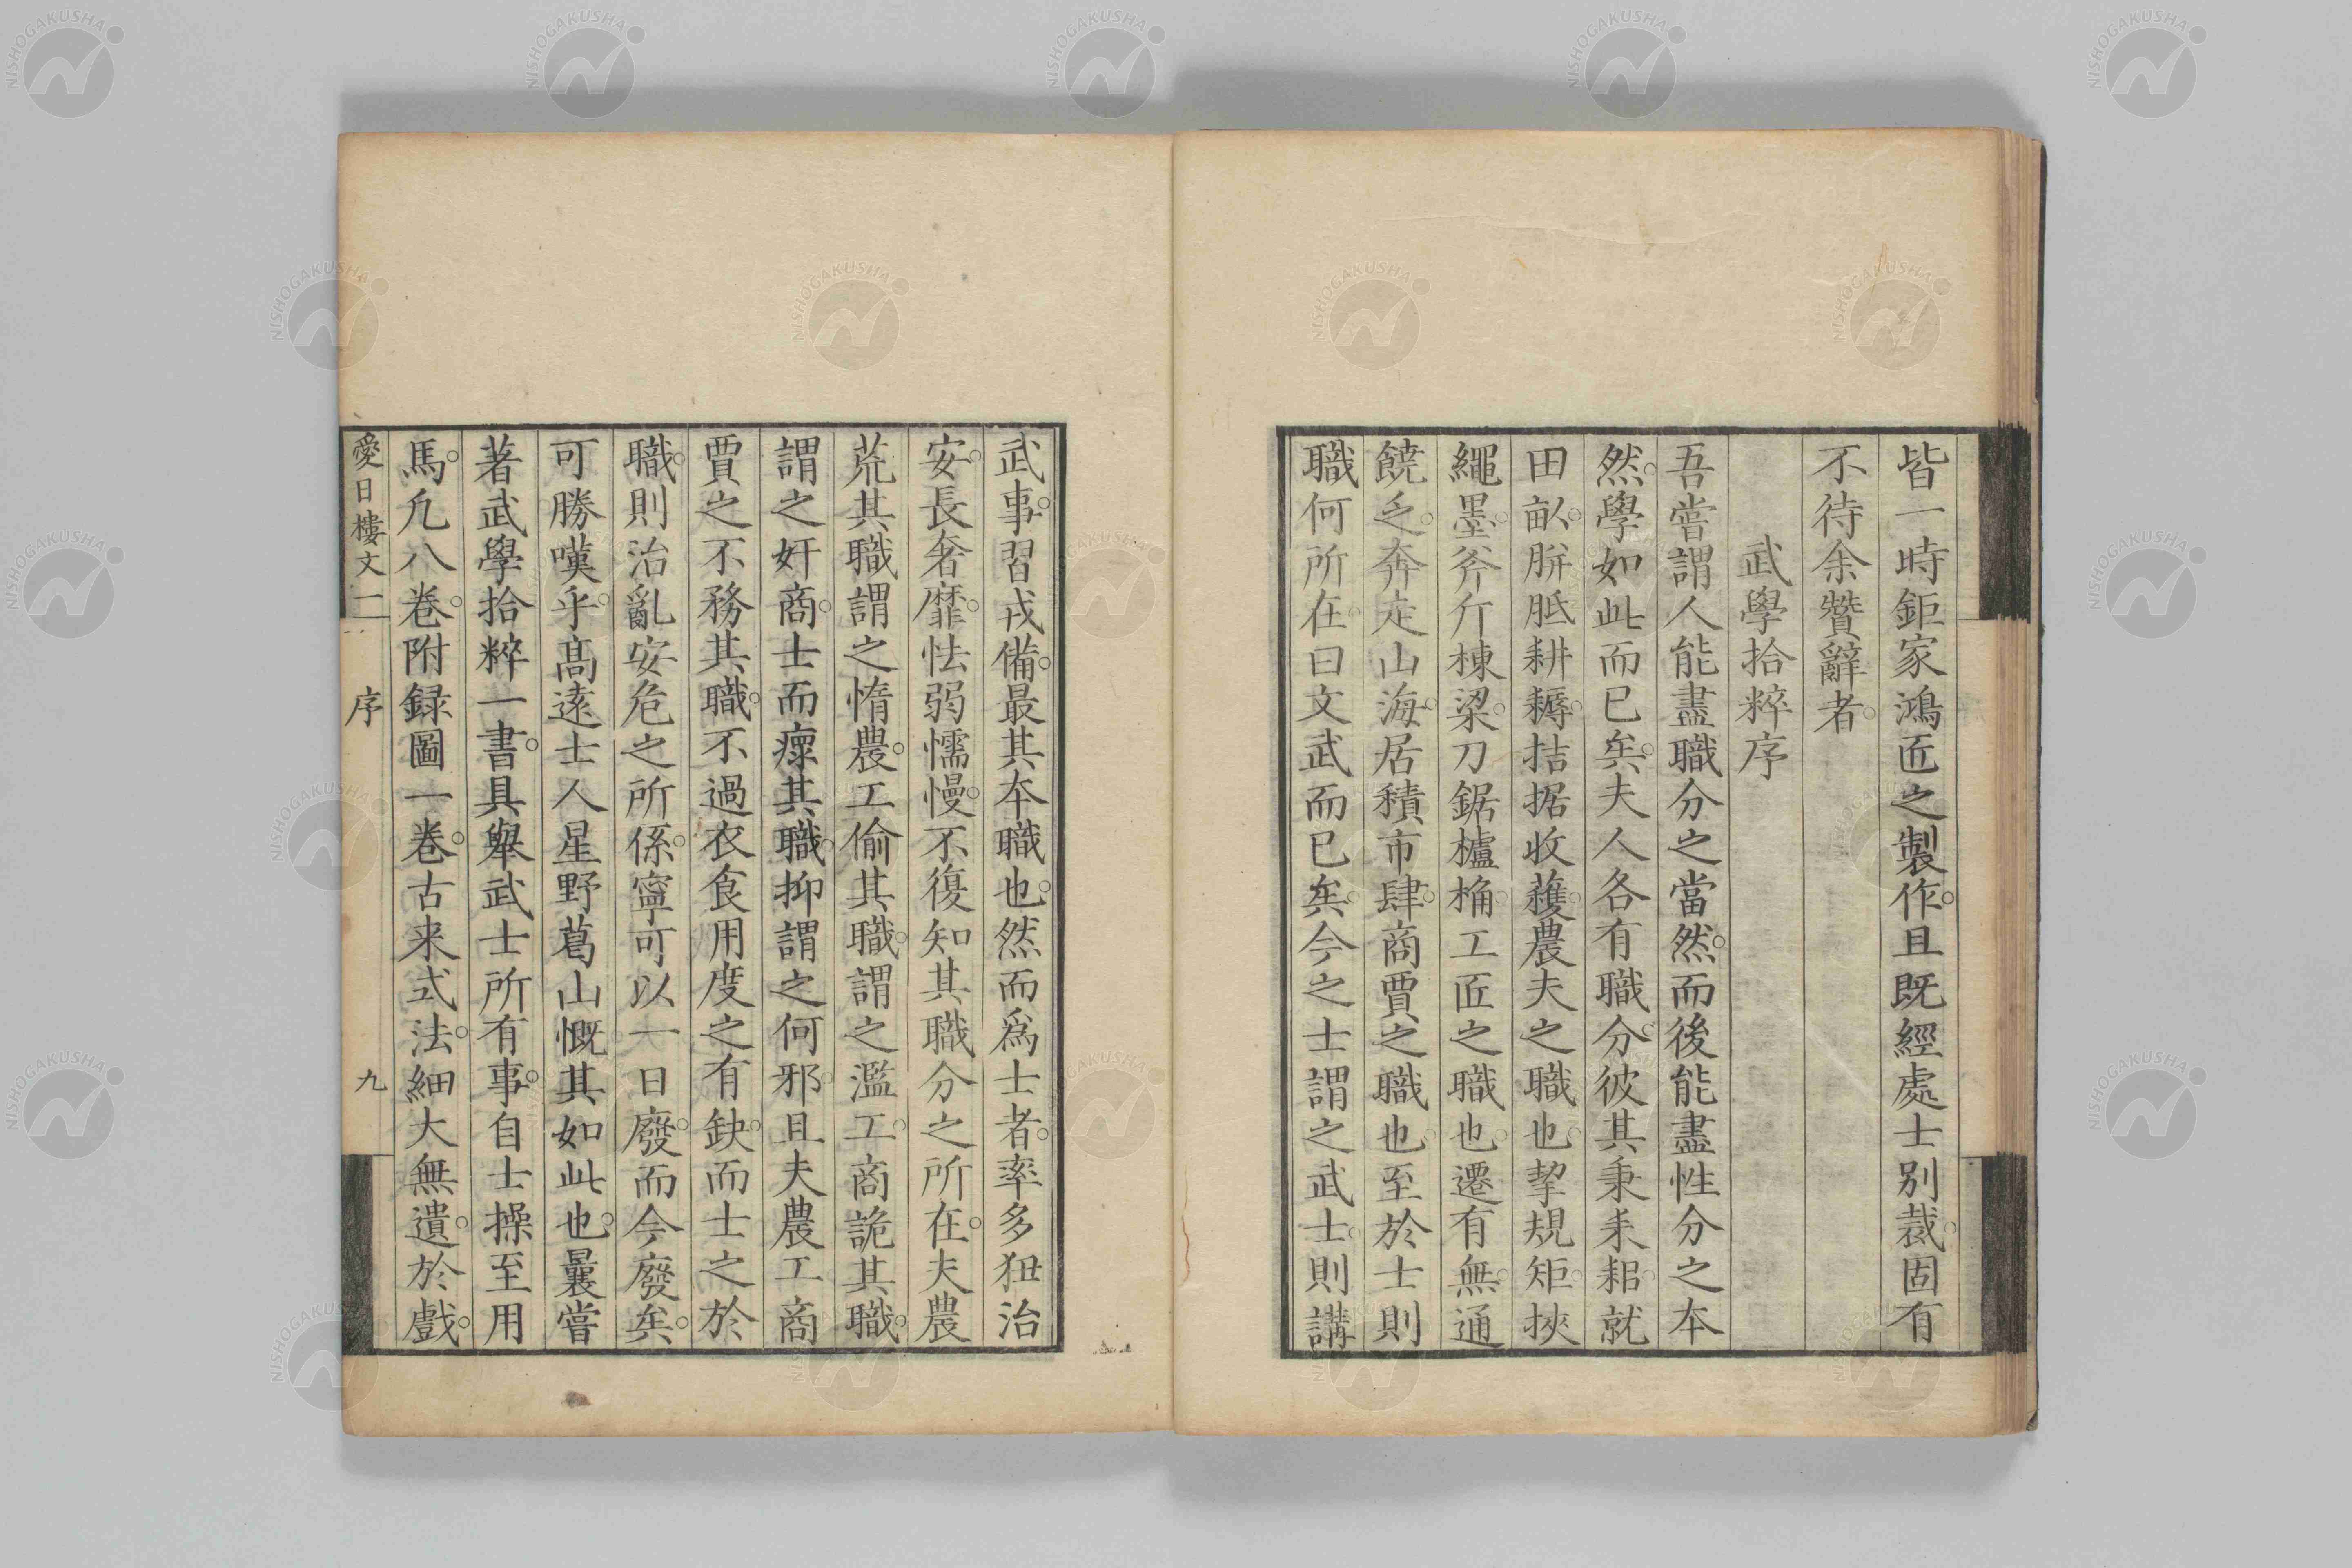 皆一時鉅家鴻匠之製作。且既經處士別裁。固有
不待余贊辭者。
武學拾粹序
吾嘗謂人能盡職分之當然。而後能盡性分之本
然。學如此而已矣。夫人各有職分。彼其秉耒耜。就
田畝。胼胝耕耨。拮据收穫。農夫之職也。挈規矩。挾
繩墨。斧斤棟梁。刀鋸櫨桷。工匠之職也。遷有無。通
饒乏。奔走山海。居積市肆。商賈之職也。至於士則
職何所在。曰文武而已矣。今之士謂之武士。則講
武事。習戎備。最其本職也。然而爲士者。率多狃治
安。長奢靡。怯弱懦慢。不復知其職分之所在。夫農
荒其職謂之惰農。工偷其職。謂之濫工。商詭其職。
謂之奸商。士而瘝其職。抑謂之何邪。且夫農工商
賈之不務其職。不過衣食用度之有缺。而士之於
職。則治亂安危之所係。寧可以一日廢。而今廢矣。
可勝嘆乎。高遠士人星野葛山慨其如此也。曩嘗
著武學拾粹一書。具舉武士所有事。自士操至用
馬。凡八卷。附録圖一卷。古来式法。細大無遺。於戲。
愛日樓文二 序 九
NISHOGAKUSHA